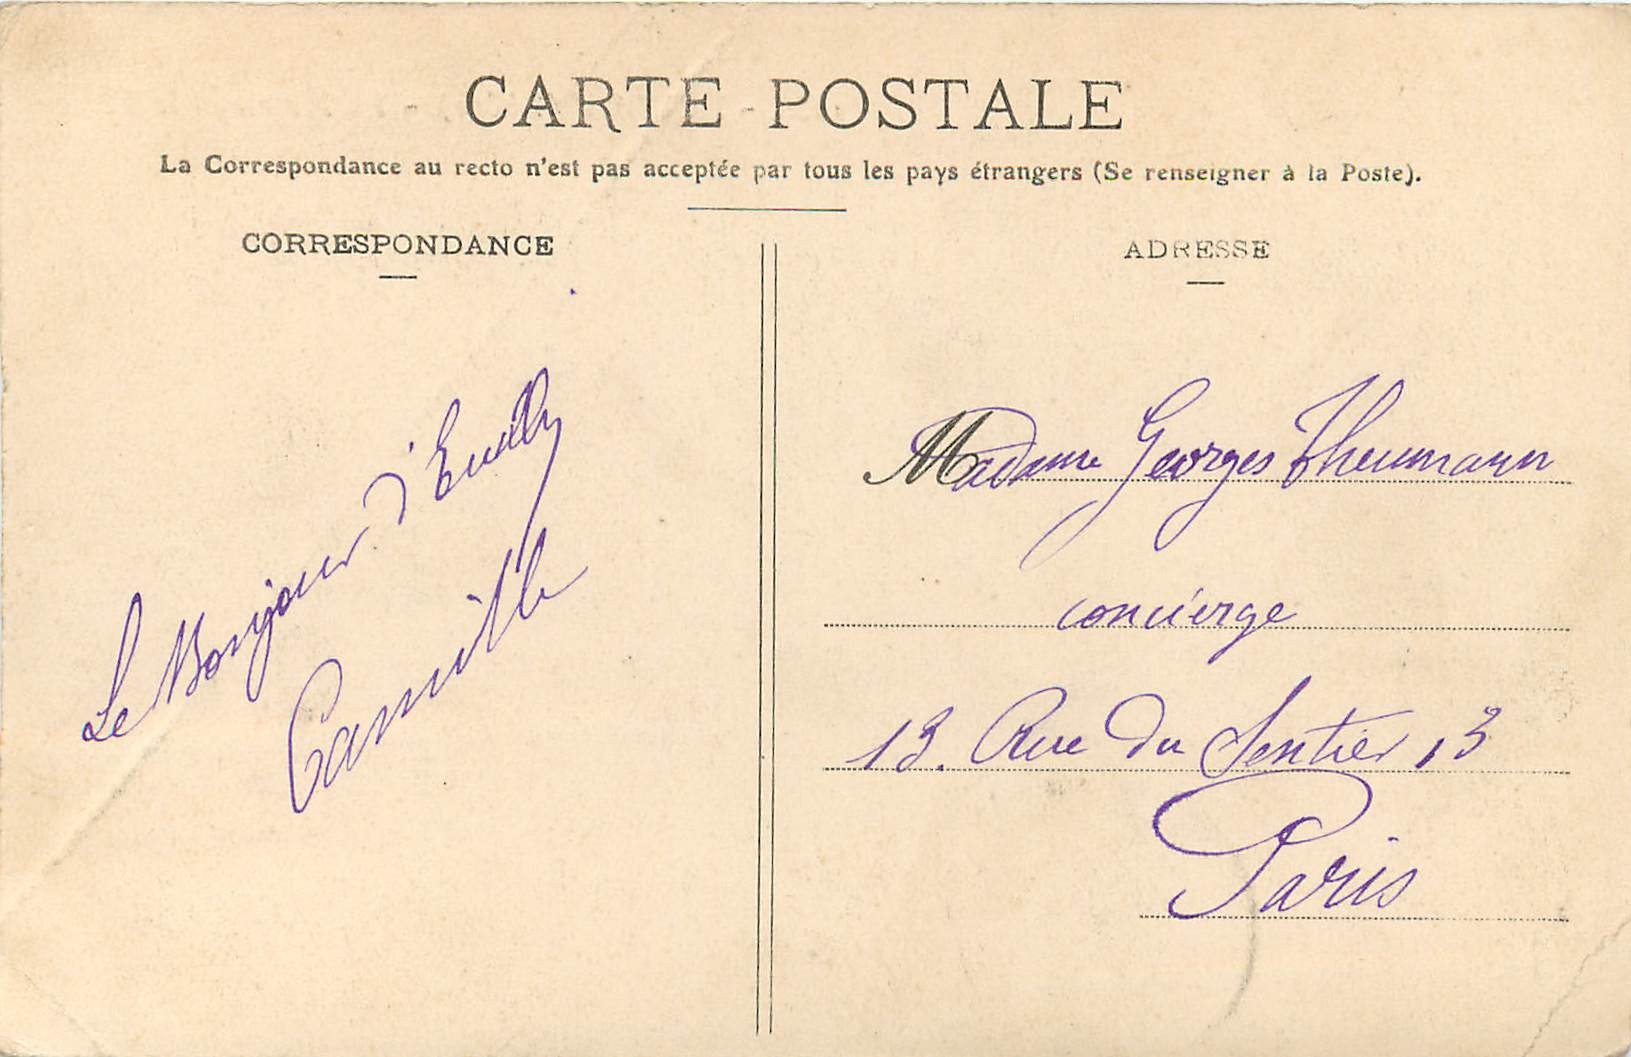 CARTE POSTALE
La Correspondance au recto n'est pas acceptée par tous les pays étrangers (Se renseigner à la Poste).
CORRESPONDANCE
Le Bonjour d'
Camille
ADRESSE
Madame Georges Theumann
concierge
13. Rue du Sentier 13
Paris